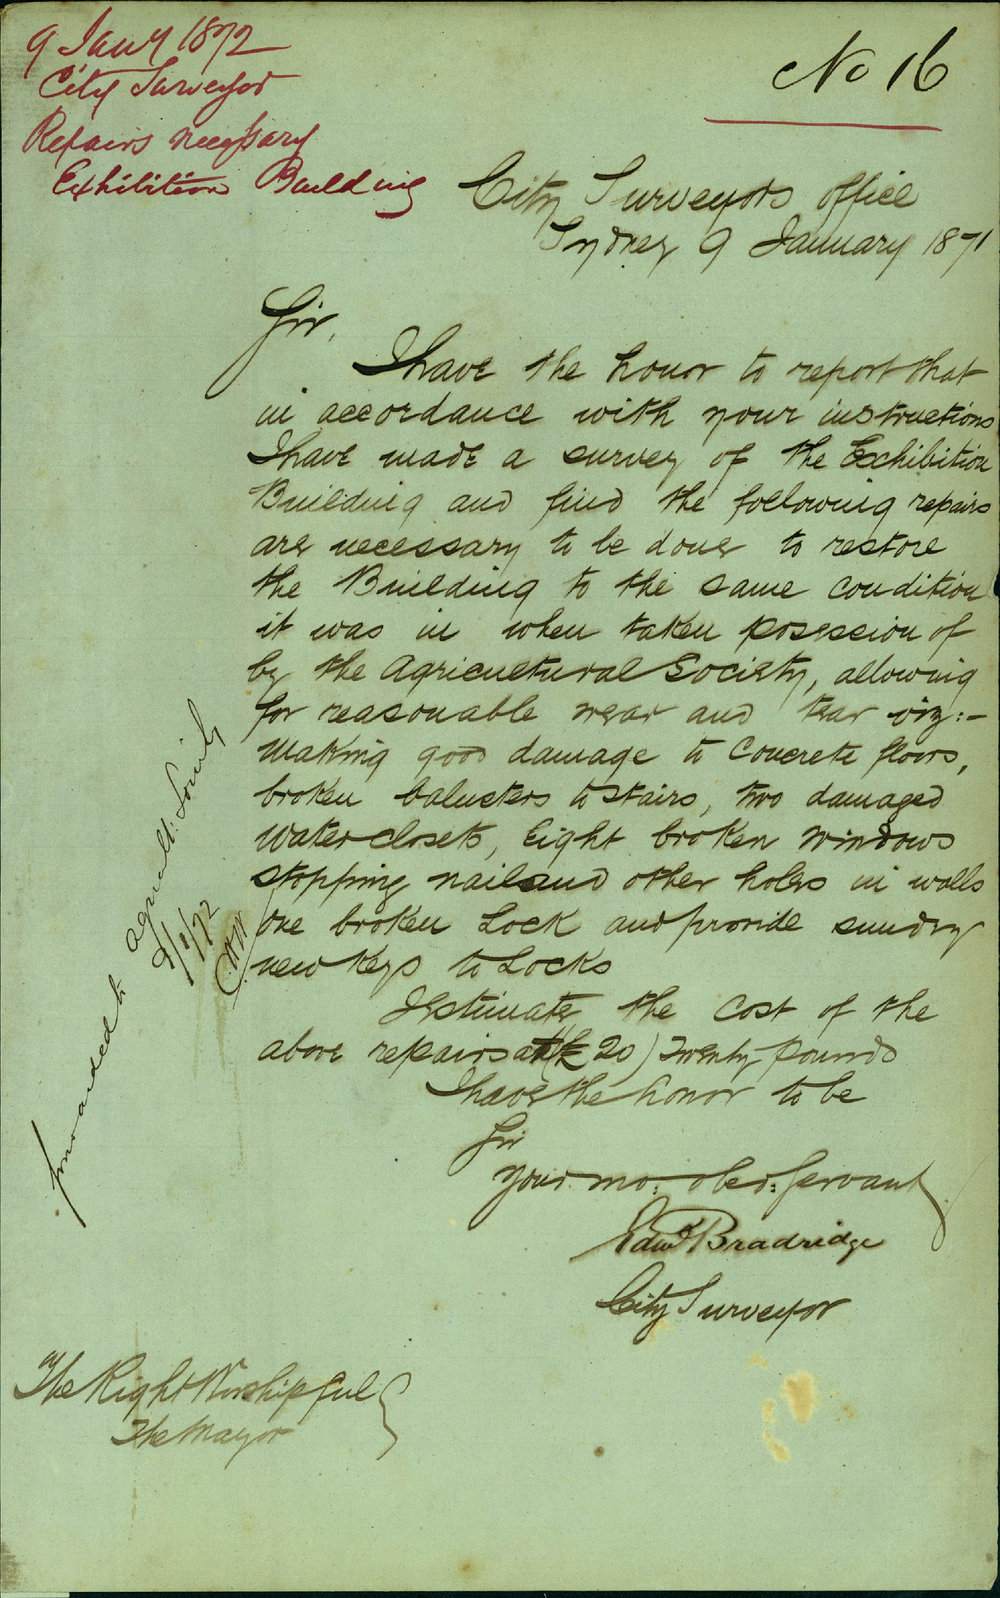 9 Jany 1872
City Surveyor
Repairs necessary
Exhibition Building
No 16
City Surveyors office
Sydney 9 January 1871
Sir,
I have the honor to report that
in accordance with your instructions
I have made a survey of the Exhibition
Building and find the following repairs
are necessary to be done to restore
the Building to the same condition
it was in when taken posession of
by the Agricultural Society, allowing
for reasonable wear and tear viz:-
Making good damage to Concrete floors,
broken balusters to stairs, two damaged
Water closets, Eight broken windows
stopping nail and other holes in walls
One broken Lock and provide sundry
new keys to Locks
I estimate the cost of the
above repairs at (£20) Twenty pounds
I have the honor to be
Sir
Your mo: obed: Servant
Edwd Bradridge
City Surveyor
The Right Worshipful
The Mayor
forwarded to Agricult: Society
9/1/72